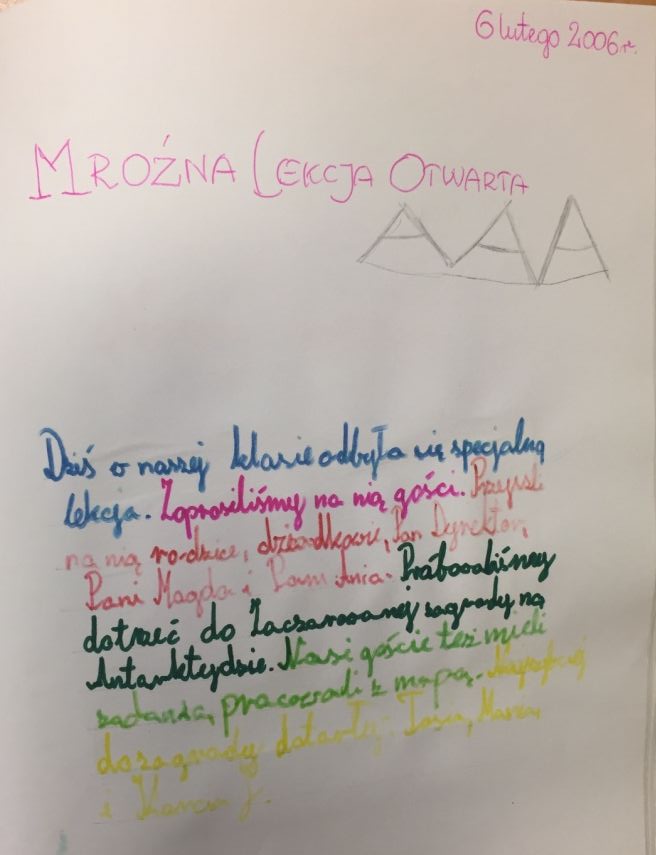 6 lutego 2006 r.
MROŹNA LEKCJA OTWARTA
AAA
Dziś w naszej klasie odbyła się specjalna
lekcja. Zaprosiliśmy na nią gości. Przyszli
na nią rodzice, dziadkowie, Pan Dyrektor,
Pani Magda i Pani Ania. Próbowaliśmy
dotrzeć do Zaczarowanej zagrody na
Antarktydzie. Nasi goście też mieli
zadania, pracowali z mapą. Najszybciej
do zagrody dotarły: Tosia,
i